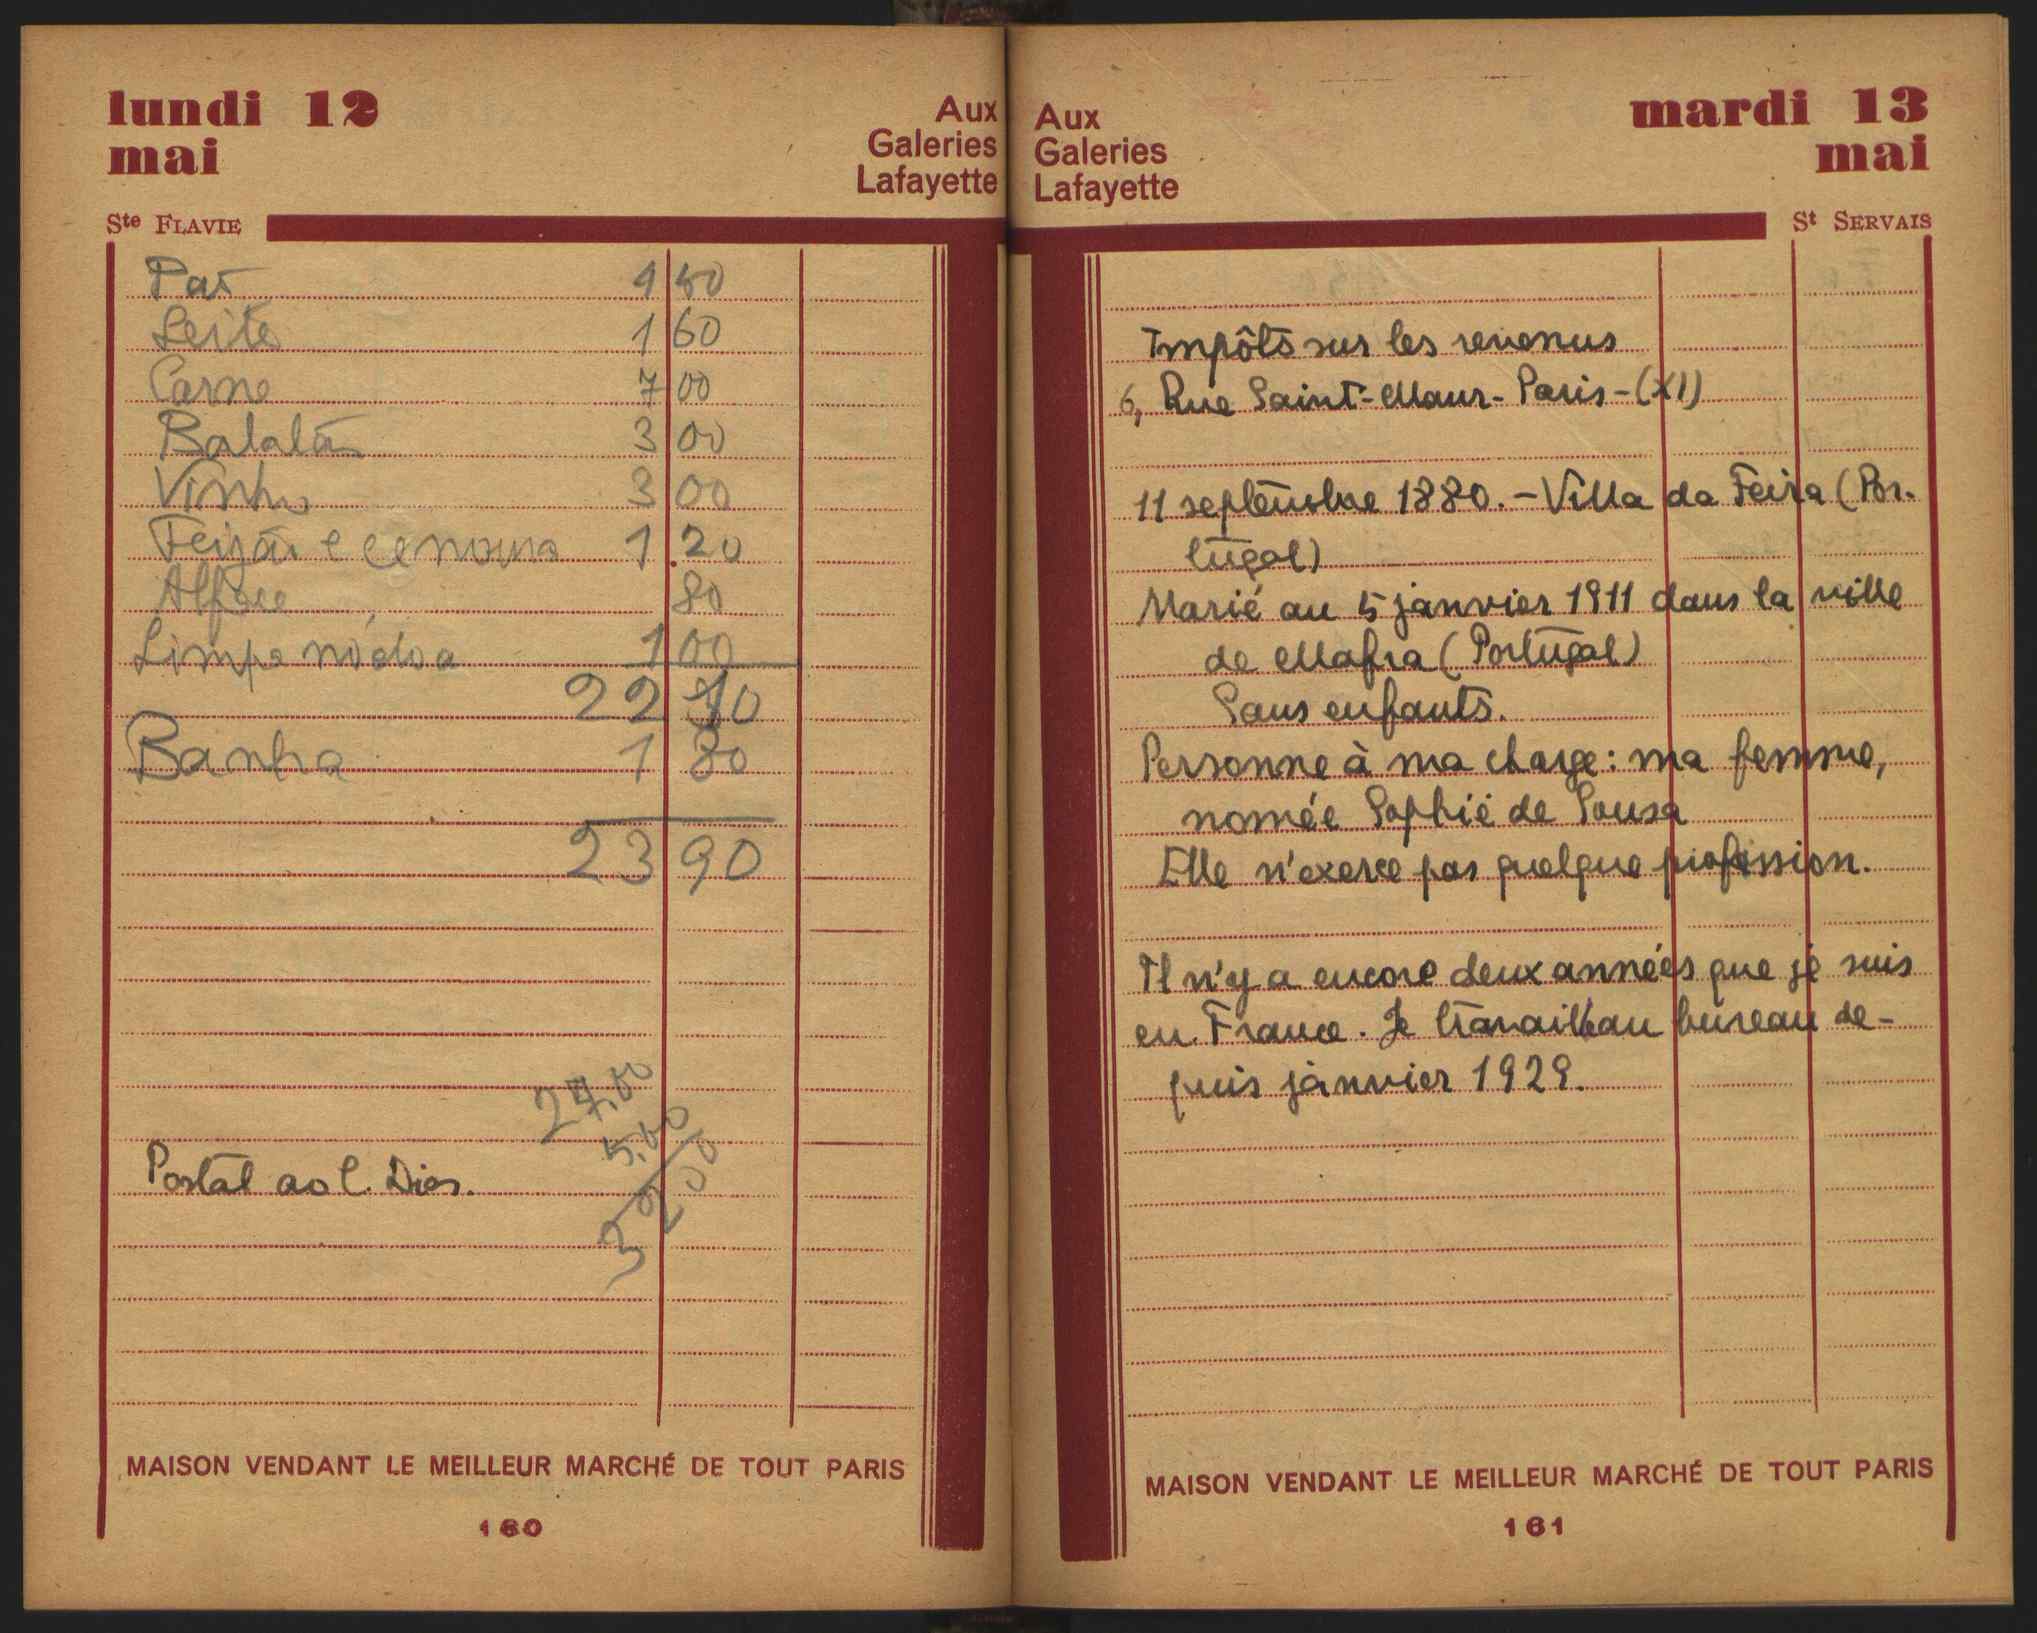 lundi 12
mai
Aux
Galeries
Lafayette
Ste FLAVIE
Pão 4 50
Leite 1 60
Carne 7 00
Batatas 3 00
Vinho 3 00
Feijão e cenoura 1.20
Alface 80
Limpa nódoa 1 00
22 10
Banha 1 80
23 90
27.00
5.00
32 00
Postal ao C. Dias.
MAISON VENDANT LE MEILLEUR MARCHÉ DE TOUT PARIS
160
Aux
Galeries
Lafayette
mardi 13
mai
St SERVAIS
Impôts sur les revenus
6, Rue Saint-Maur- Paris-(XI)
11 septembre 1880. - Villa da Feira (Por-
tugal)
Marié au 5 janvier 1911 dans la ville
de Mafra (Portugal)
Sans enfants.
Personne à ma charge: ma femme,
nomée Sophie de Sousa
Elle n'exerce pas quelque profession.
Il n'y a encore deux années que je suis
en France. Je travaille au bureau de-
puis janvier 1929.
MAISON VENDANT LE MEILLEUR MARCHÉ DE TOUT PARIS
161